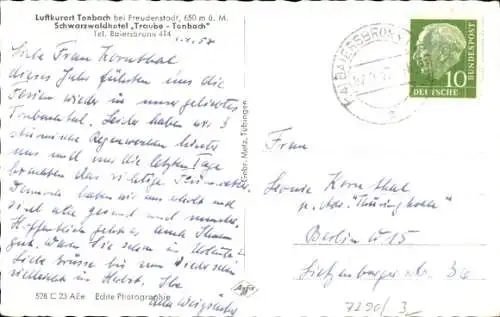 Luftkurort Tonbach bei Freudenstadt, 650 m ü. M.
Schwarzwaldhotel „Traube - Tonbach"
Tel. Baiersbronn 414
Liebe Frau Kornthal
dieses Jahr führten uns die
Ferien wieder in unser geliebtes
Tonbachtal. Leider haben wir 3
Regenwochen hinter
uns und nur die letzten Tage
brachten das richtige
Dennoch haben wir uns erholt und
sind alle gesund und munter.
Hoffentlich geht es auch Ihnen
gut. Waren Sie schon in Urlaub?
Liebe Grüsse bis zum Wiedersehen
vielleicht im Herbst. Ihre
578 C 23 AEe Echte Photographie
Gebr. Metz, Tübingen
Agfa
BAIERSBRONN
10
DEUTSCHE
BUNDESPOST
Frau
Leonie Kornthal
Berlin W 15
Lietzenburger Str. 36
7290/3